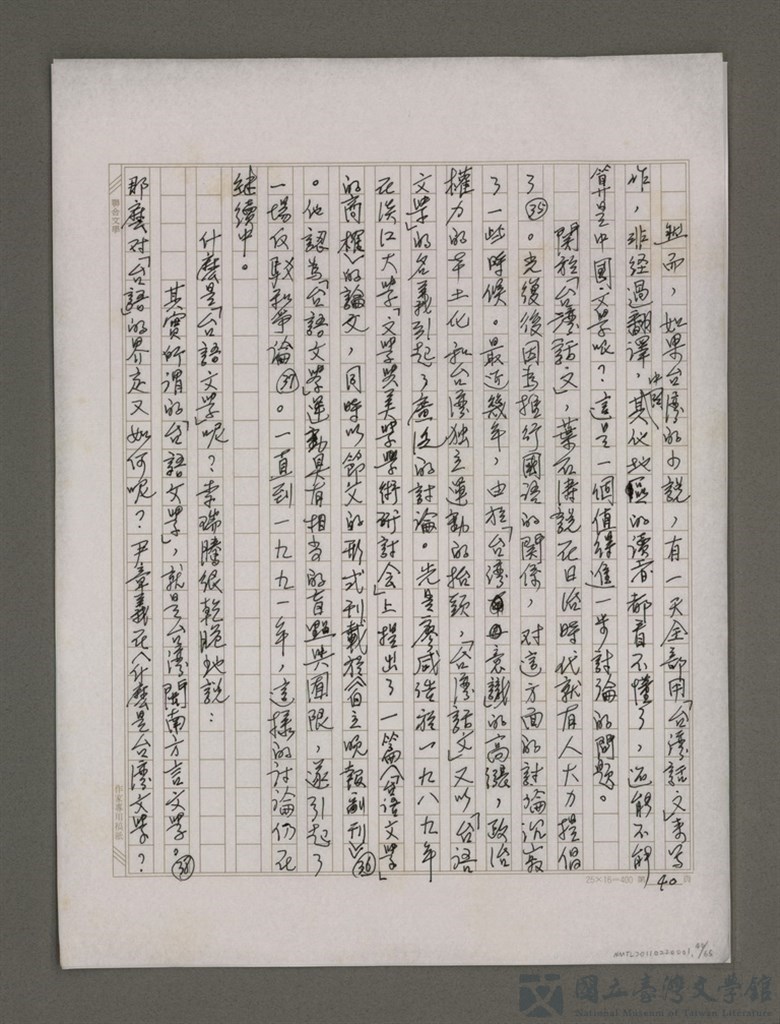 然而，如果台湾的小説，有一天全部用「台湾話文」來寫
作，非经過翻译，其他中國地區的读者都看不懂了，还能不能
算是中国文学呢？這是一個值得進一步討論的問题。
関於「台湾話文」，葉石涛説在日治時代就有人大力提倡
了㉟。光復後因為推行國语的関係，对這方面的討論沉寂
了一些時候。最近幾年，由於「台湾意識」的高漲，政治
權力的本土化和台湾独立運動的抬頭，「台湾話文」又以「台语
文學」的名義引起了廣泛的討論。先是廖咸浩於一九八九年
在淡江大學「文學與美學學術研討会」上提出了一篇〈「台语文學」
的商榷〉的論文，同時以節文的形式刊載於《自立晚報副刊》㊱
。他認為「台語文學」運動具有相当的盲點與囿限，遂引起了
一場反駁和争論㊲。一直到一九九一年，這樣的討論仍在
継續中。
什麼是「台語文學」呢？李瑞騰很乾脆地説：
其實所謂的「台語文學」，就是台湾閩南方言文學。㊳
那麼对「台語」的界定又如何呢？尹章義在〈什麼是台湾文學？
聯合文學
作家專用稿紙
25×16=400 第 40 頁
NMTL20110220001, 42/66
國立臺灣文學館
National Museum of Taiwan Literature